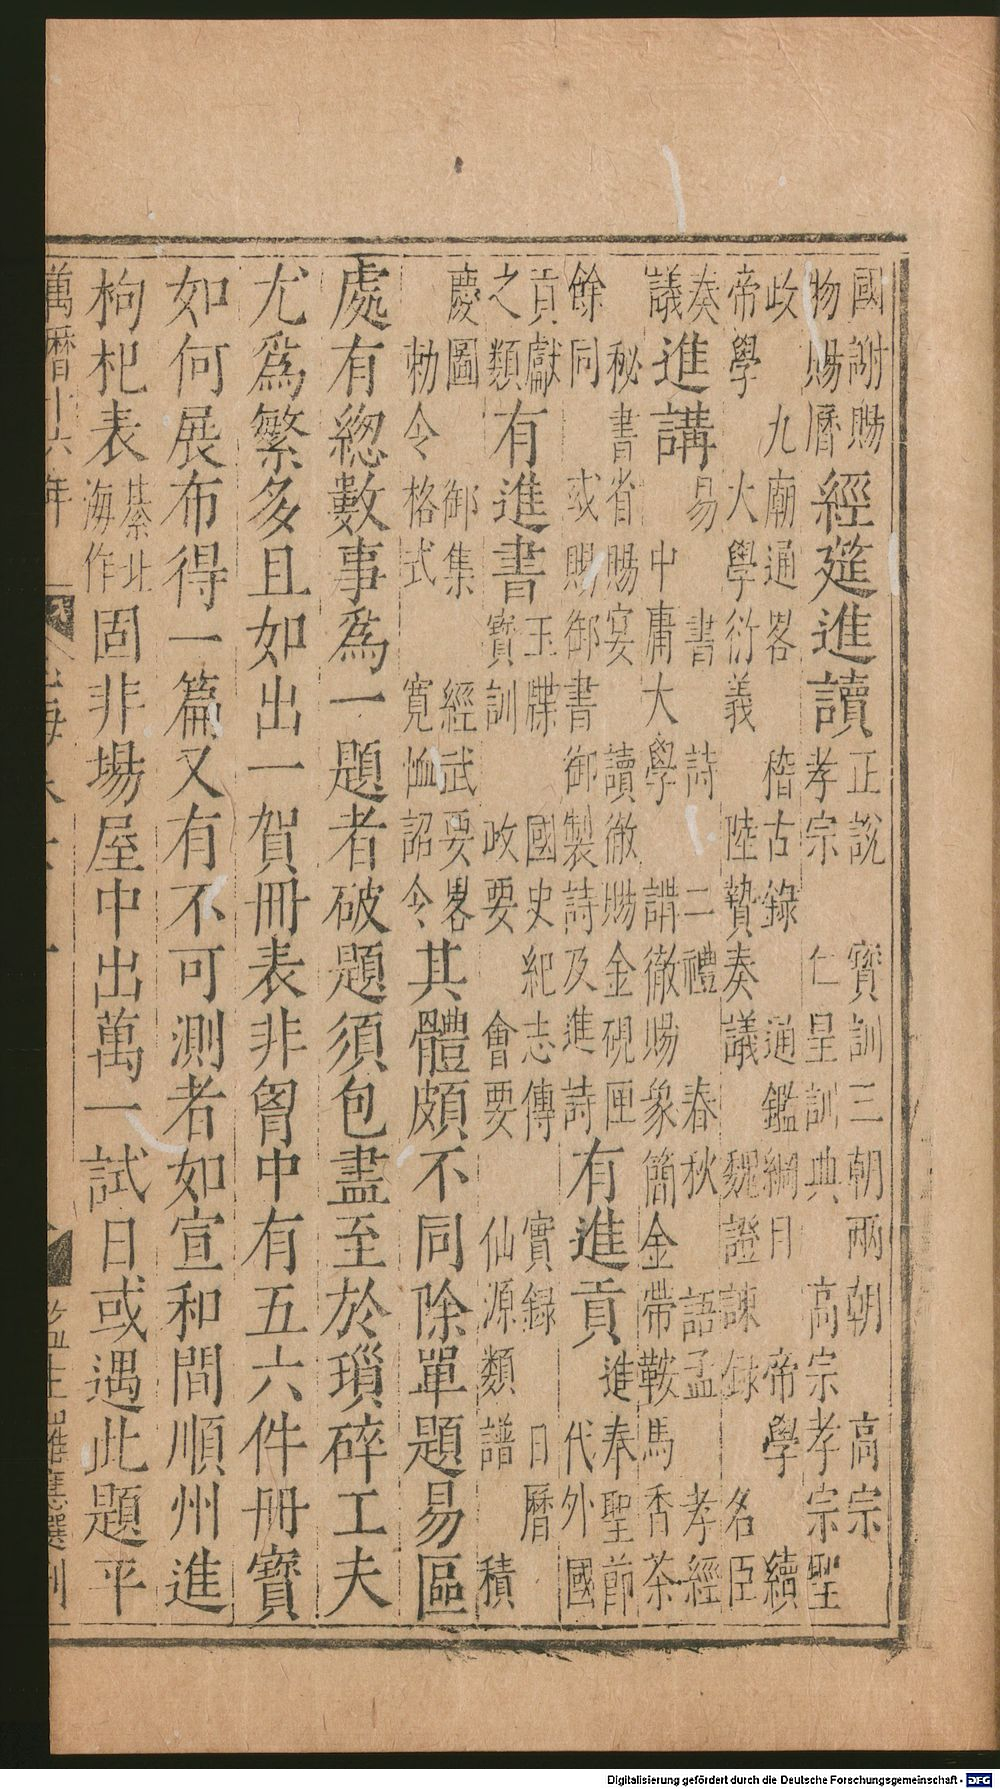 國謝賜
物賜曆
經筵進讀
正說 寶訓三朝兩朝 高宗
孝宗 仁呈訓典 高宗孝宗聖
政 九廟通畧 稽古錄 通鑑綱目 帝學 續
帝學 大學衍義 陸贄奏議 魏證諫録 名臣
奏
議
進講
易 書 詩 二禮 春秋 語孟 孝經
中庸大學 講徹賜象簡金帶鞍馬香茶
秘書省賜宴 讀徹賜金硯匣
餘同 或賜御書御製詩及進詩
有進貢
進奉聖節
代外國
貢獻
之類
有進書
玉牒 國史紀志傳 實録 日曆
寶訓 政要 會要 仙源類譜 積
慶圖 御集 經武要畧
勑令格式 寬恤詔令
其體頗不同除單題易區
處有緫數事爲一題者破題須包盡至於瑣碎工夫
尤爲繁多且如出一賀冊表非胷中有五六件冊寶
如何展布得一篇又有不可測者如宣和間順州進
枸杞表
綦北
海作
固非塲屋中出萬一試日或遇此題平
萬曆十六年
Digitalisierung gefördert durch die Deutsche Forschungsgemeinschaft - DFG